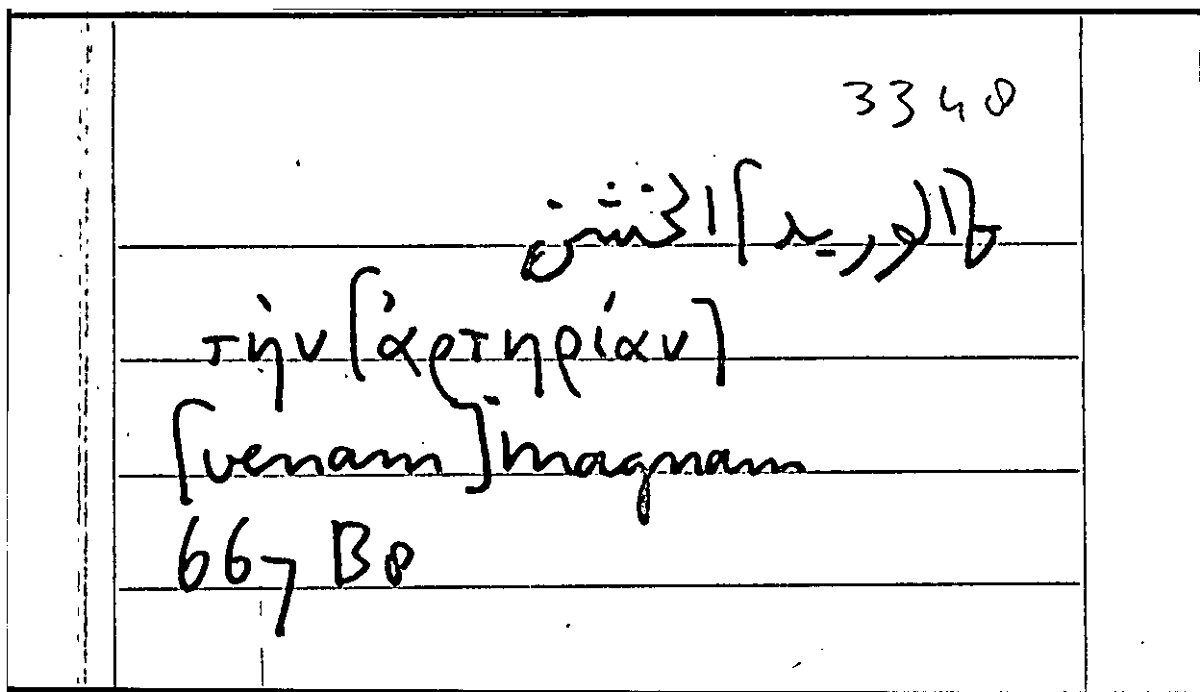 3348
[الوريد] الخشن
τὴν [ἀρτηρίαν]
[venam] magnam
667 B8